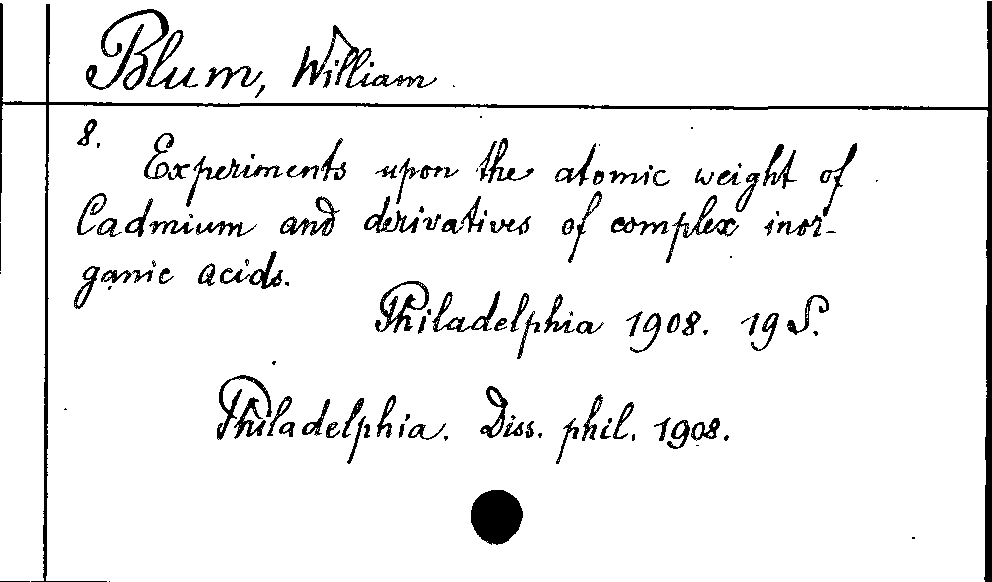 Blum, William
8.
Experiments upon the atomic weight of
Cadmium and derivatives of complex inor-
ganic acids.
Philadelphia 1908. 19 S.
Philadelphia. Diss. phil. 1908.